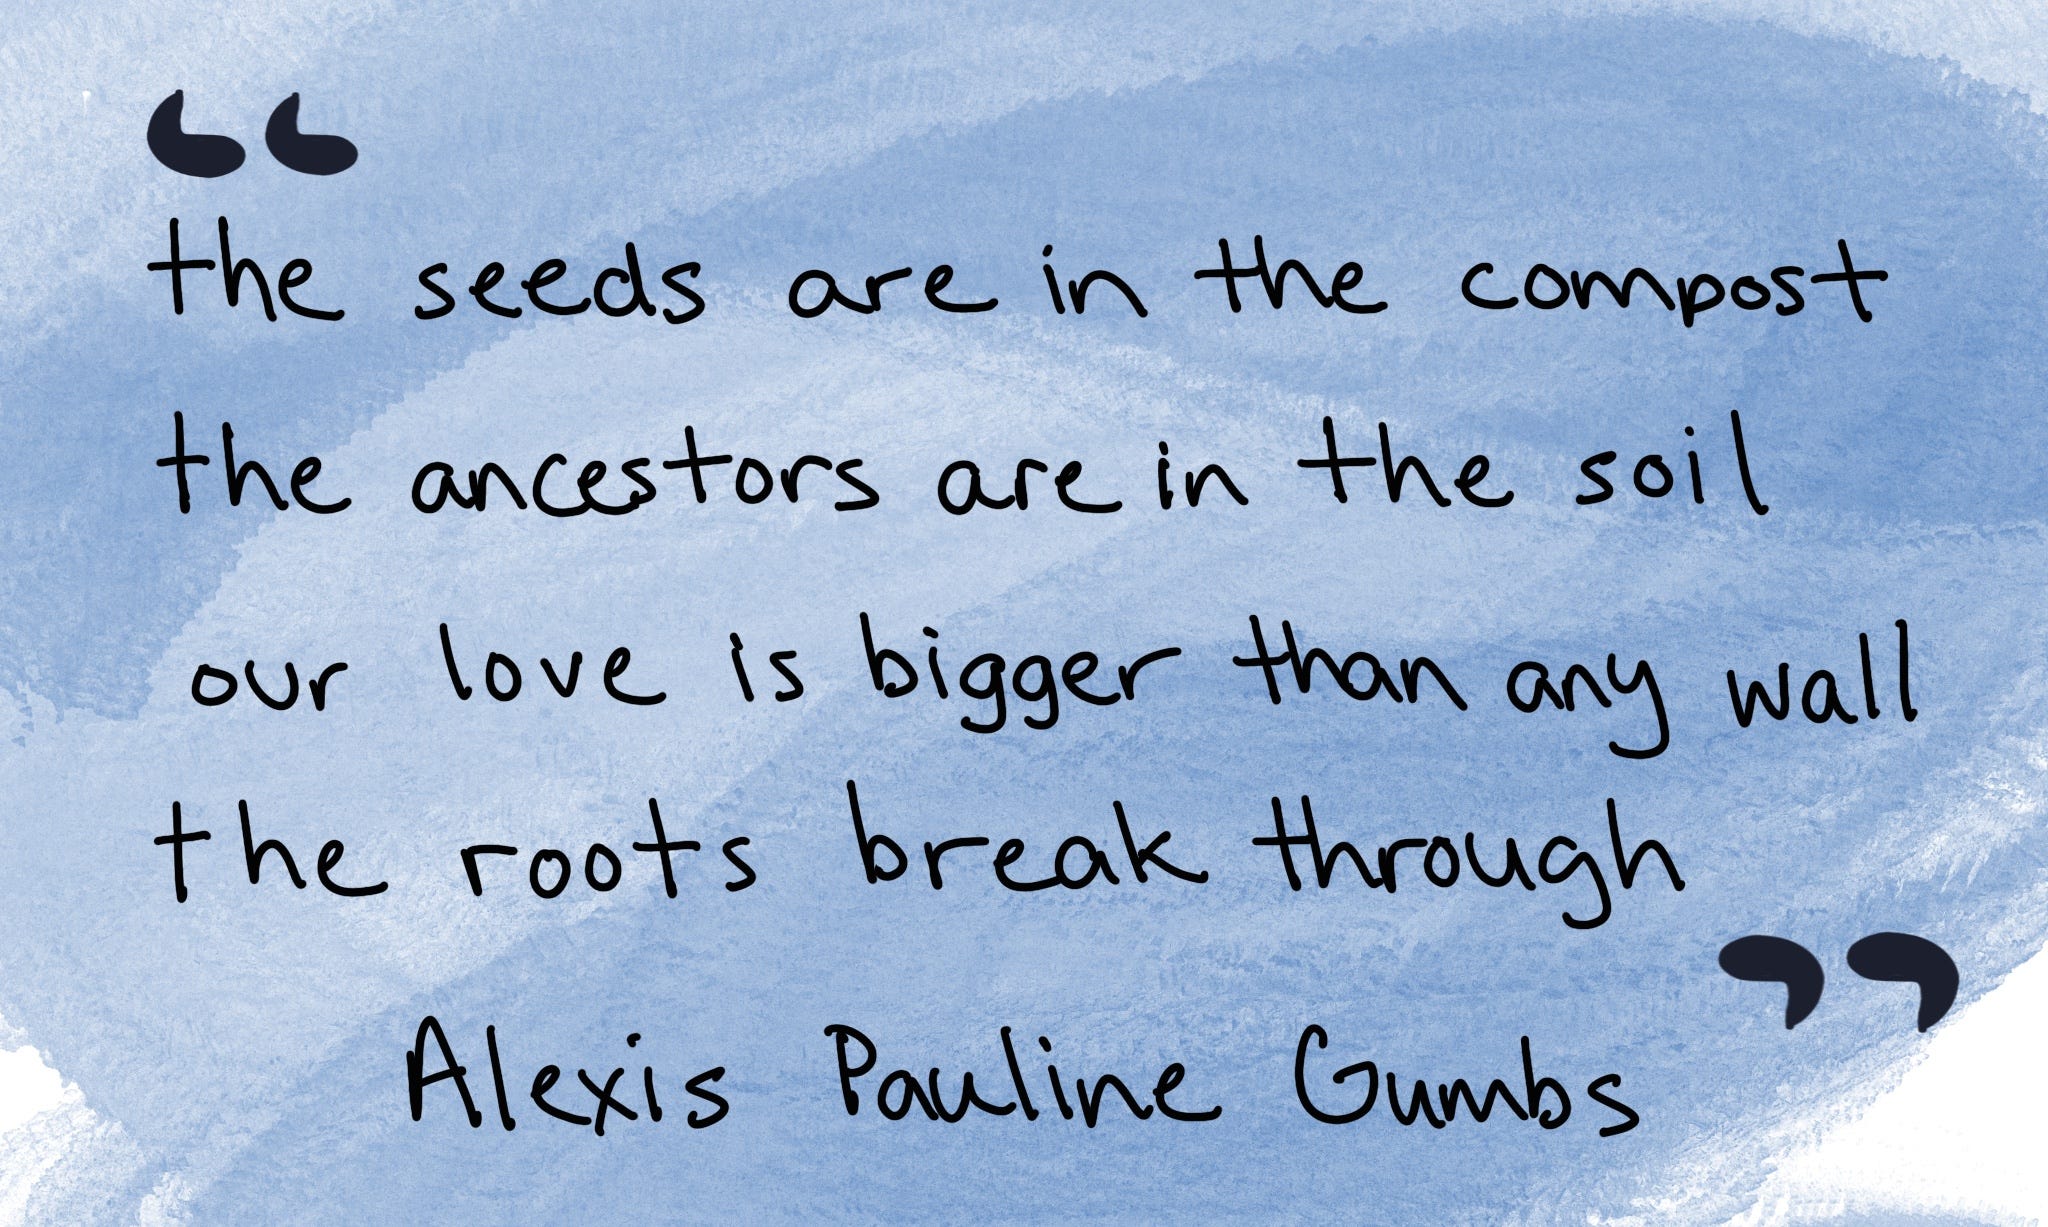 “
the seeds are in the compost
the ancestors are in the soil
our love is bigger than any wall
the roots break through
”
Alexis Pauline Gumbs